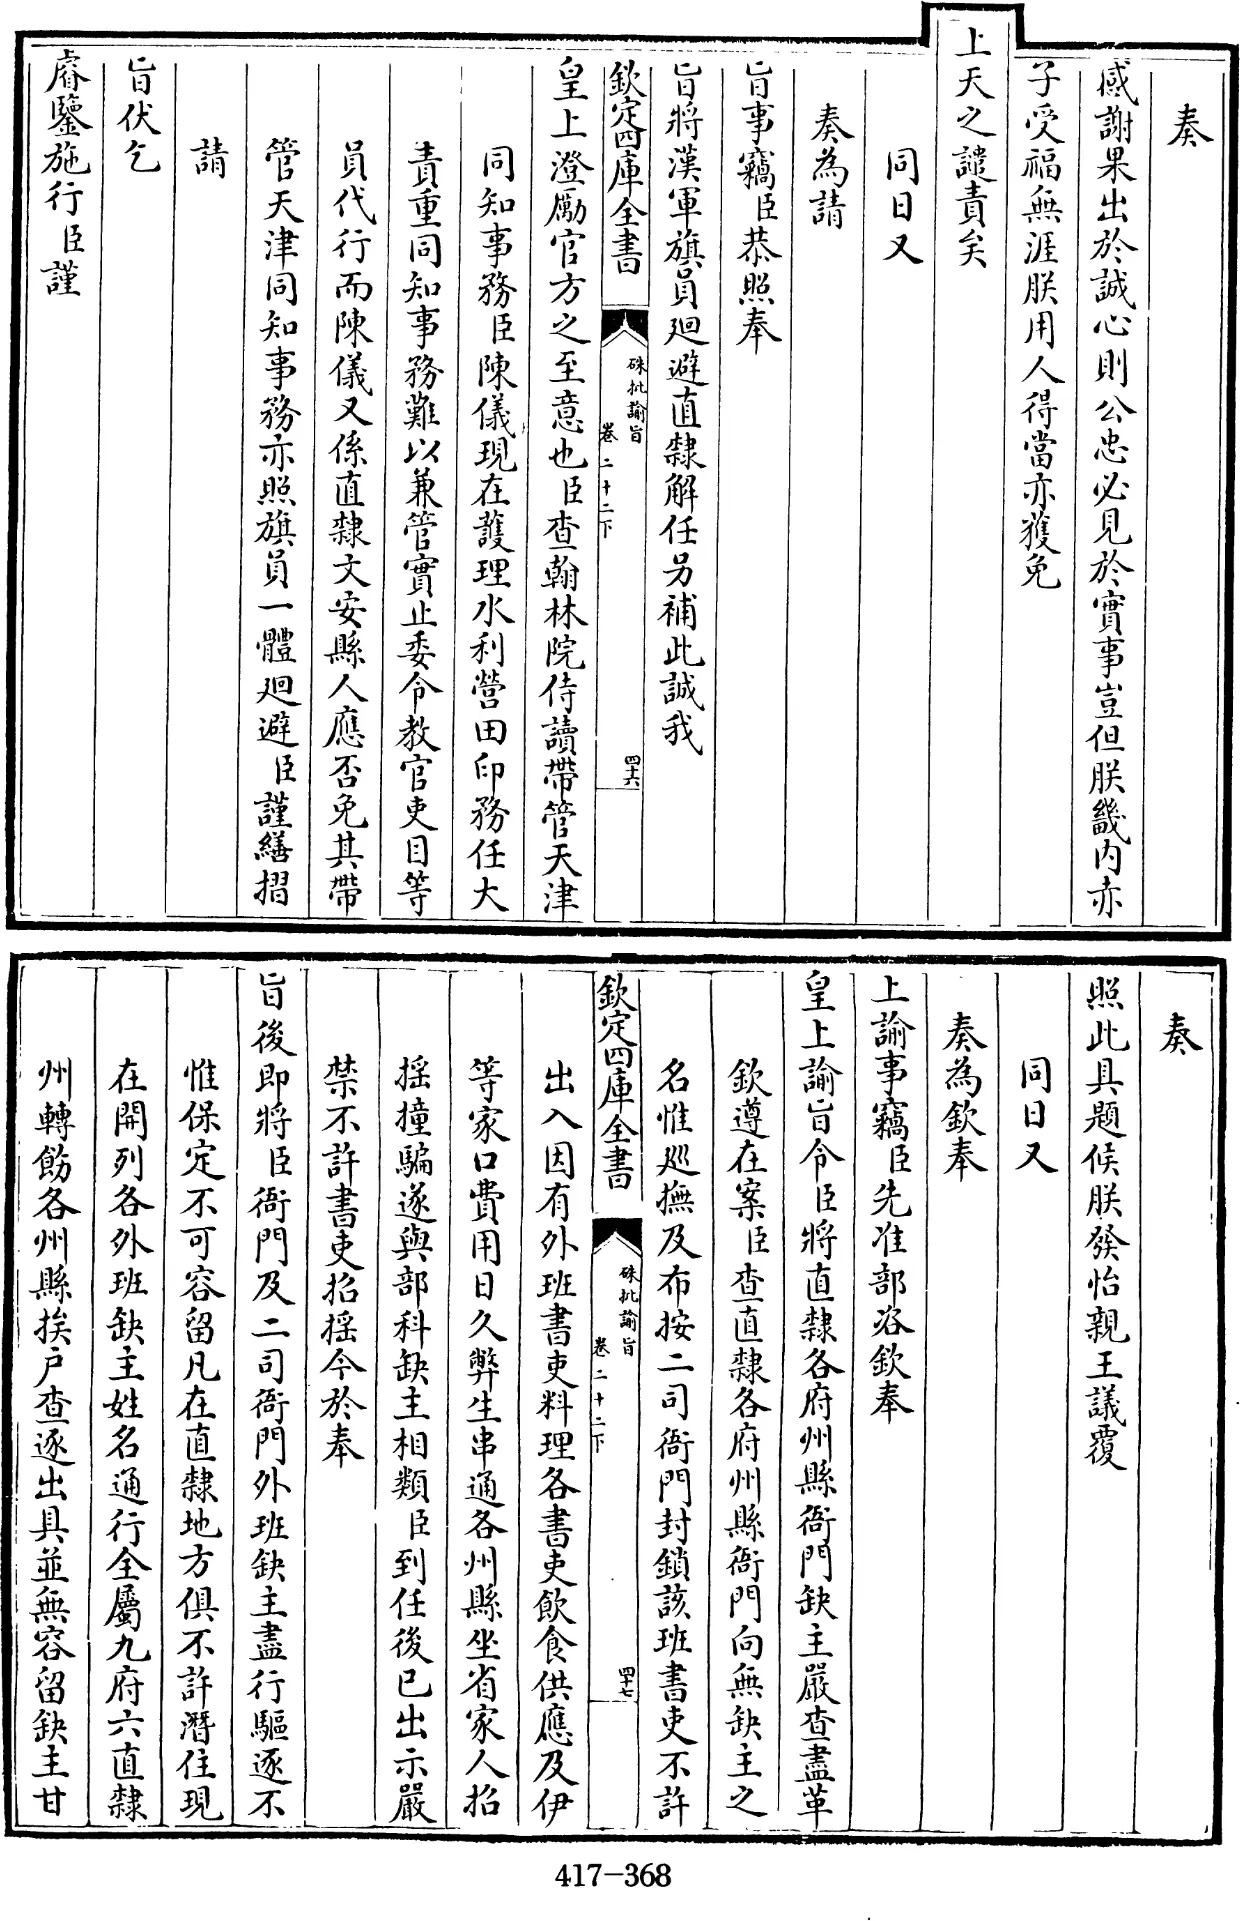 奏
感謝果出於誠心則公忠必見於實事豈但朕畿内亦
子受福無涯朕用人得當亦獲免
上天之譴責矣
同日又
奏為請
旨事竊臣恭照奉
旨將漢軍旗員廻避直隸解任另補此誠我
欽定四庫全書
硃批諭旨
卷二十二下
四十六
皇上澄勵官方之至意也臣查翰林院侍讀帶管天津
同知事務臣陳儀現在護理水利營田印務任大
責重同知事務難以兼管實止委令教官吏目等
員代行而陳儀又係直隸文安縣人應否免其帶
管天津同知事務亦照旗員一體廻避臣謹繕摺
請
旨伏乞
睿鑒施行臣謹
奏
照此具題候朕發怡親王議覆
同日又
奏為欽奉
上諭事竊臣先准部咨欽奉
皇上諭旨令臣將直隸各府州縣衙門缺主嚴查盡革
欽遵在案臣查直隸各府州縣衙門向無缺主之
名惟廵撫及布按二司衙門封鎖該班書吏不許
欽定四庫全書
硃批諭旨
卷二十二下
四十七
出入因有外班書吏料理各書吏飲食供應及伊
等家口費用日久弊生串通各州縣坐省家人招
摇撞騙遂與部科缺主相類臣到任後已出示嚴
禁不許書吏招摇今於奉
旨後即將臣衙門及二司衙門外班缺主盡行驅逐不
惟保定不可容留凡在直隸地方俱不許潛住現
在開列各外班缺主姓名通行全屬九府六直隸
州轉飭各州縣挨户查逐出具並無容留缺主甘
417-368